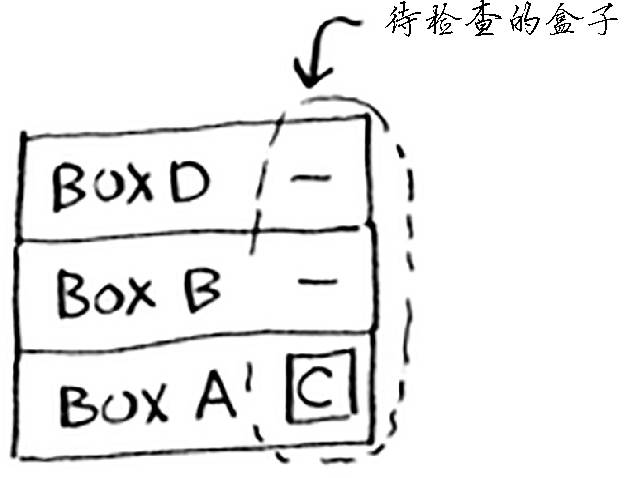 待检查的盒子
BOX D -
BOX B -
BOX A C